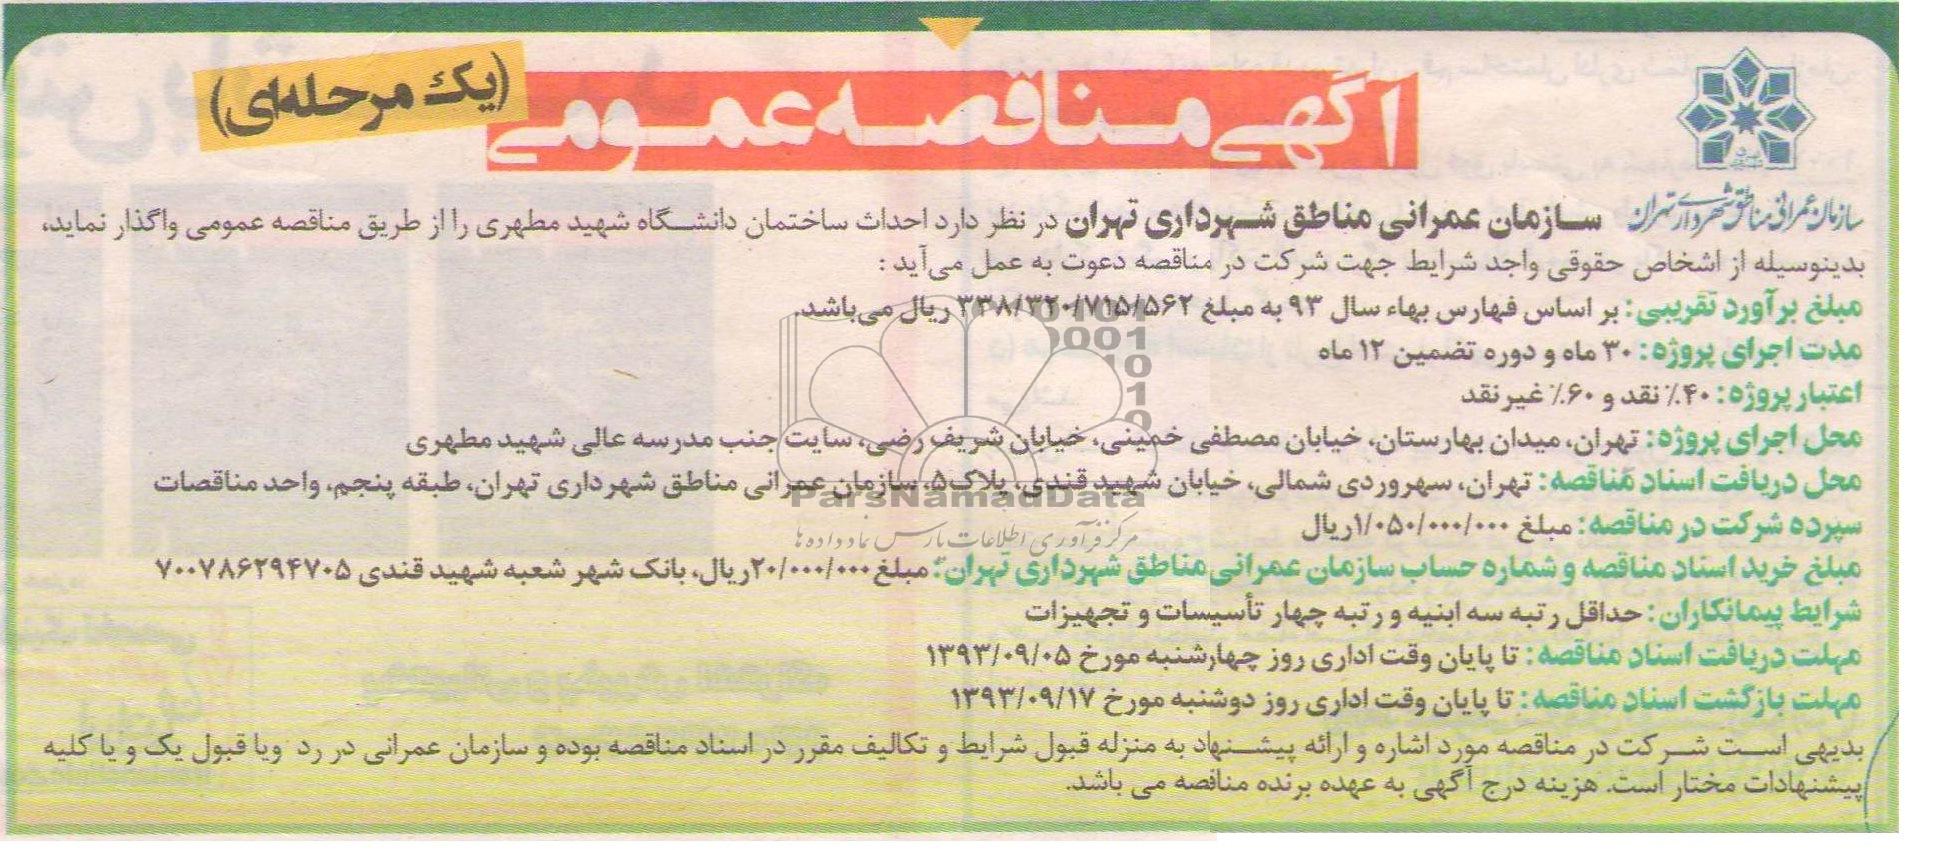 آگهی مناقصه عمومی
(یک مرحله‌ای)
سازمان عمرانی مناطق شهرداری تهران
سازمان عمرانی مناطق شهرداری تهران در نظر دارد احداث ساختمان دانشگاه شهید مطهری را از طریق مناقصه عمومی واگذار نماید،
بدینوسیله از اشخاص حقوقی واجد شرایط جهت شرکت در مناقصه دعوت به عمل می‌آید :
مبلغ برآورد تقریبی: بر اساس فهارس بهاء سال ۹۳ به مبلغ ۳۳۸/۳۲۰/۷۱۵/۵۶۲ ریال می‌باشد.
مدت اجرای پروژه: ۳۰ ماه و دوره تضمین ۱۲ ماه
اعتبار پروژه: ۴۰٪ نقد و ۶۰٪ غیر نقد
محل اجرای پروژه: تهران، میدان بهارستان، خیابان مصطفی خمینی، خیابان شریف رضی، سایت جنب مدرسه عالی شهید مطهری
محل دریافت اسناد مناقصه: تهران، سهروردی شمالی، خیابان شهید قندی، پلاک۵، سازمان عمرانی مناطق شهرداری تهران، طبقه پنجم، واحد مناقصات
ParsNamadData
سپرده شرکت در مناقصه: مبلغ ۱/۰۵۰/۰۰۰/۰۰۰ریال
مرکز فرآوری اطلاعات پارس نماد داده ها
مبلغ خرید اسناد مناقصه و شماره حساب سازمان عمرانی مناطق شهرداری تهران: مبلغ ۲۰/۰۰۰/۰۰۰ریال، بانک شهر شعبه شهید قندی ۷۰۰۷۸۶۲۹۴۷۰۵
شرایط پیمانکاران: حداقل رتبه سه ابنیه و رتبه چهار تأسیسات و تجهیزات
مهلت دریافت اسناد مناقصه: تا پایان وقت اداری روز چهارشنبه مورخ ۱۳۹۳/۰۹/۰۵
مهلت بازگشت اسناد مناقصه: تا پایان وقت اداری روز دوشنبه مورخ ۱۳۹۳/۰۹/۱۷
بدیهی است شرکت در مناقصه مورد اشاره و ارائه پیشنهاد به منزله قبول شرایط و تکالیف مقرر در اسناد مناقصه بوده و سازمان عمرانی در رد ویا قبول یک و یا کلیه
پیشنهادات مختار است. هزینه درج آگهی به عهده برنده مناقصه می باشد.